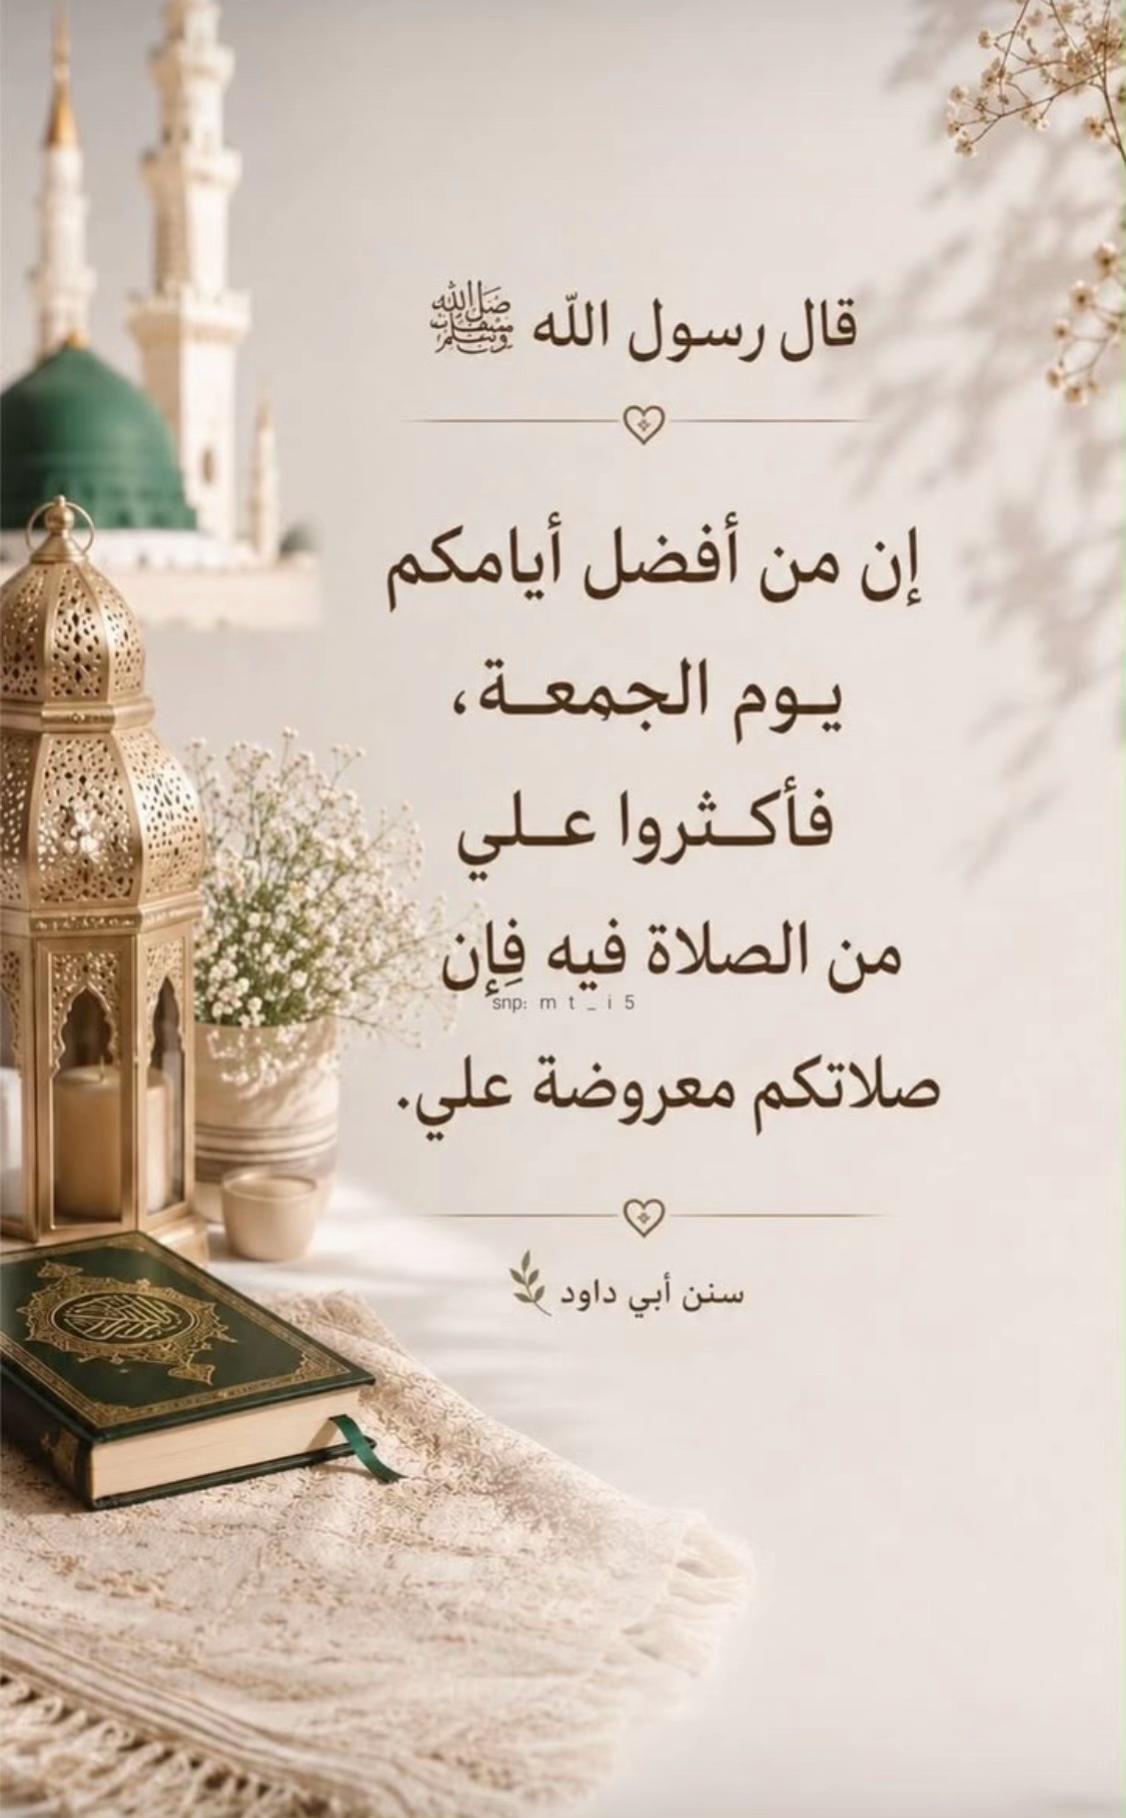 قال رسول الله ﷺ
إن من أفضل أيامكم
يـوم الجمعـة،
فأكـثروا عـلي
من الصلاة فيه فِإن
snp: m t _ i 5
صلاتكم معروضة علي.
سنن أبي داود